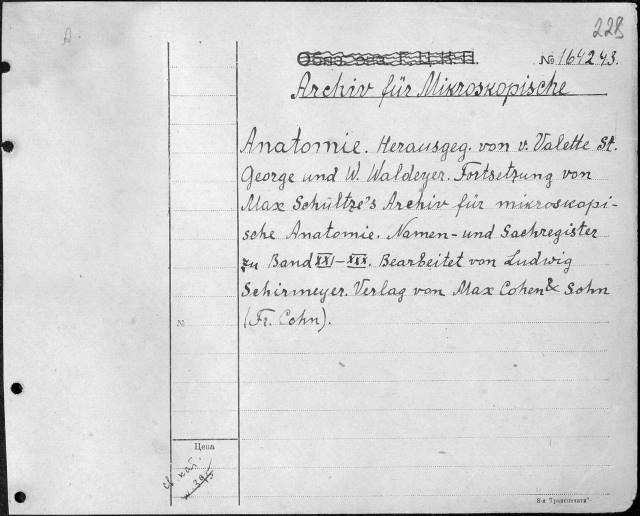 А
228
Обяз. экз. Г.Ц.К.П.
№ 164243.
Archiv für Mikroskopische
Anatomie. Herausgeg. von v. Valette St.
George und W. Waldeyer. Fortsetzung von
Max Schultze's Archiv für mikroskopi-
sche Anatomie. Namen- und Sachregister
zu Band XXI–XXX. Bearbeitet von Ludwig
Schirmeyer. Verlag von Max Cohen & Sohn
(Fr. Cohn).
№
Цена
кат.
8-я Транспечати"